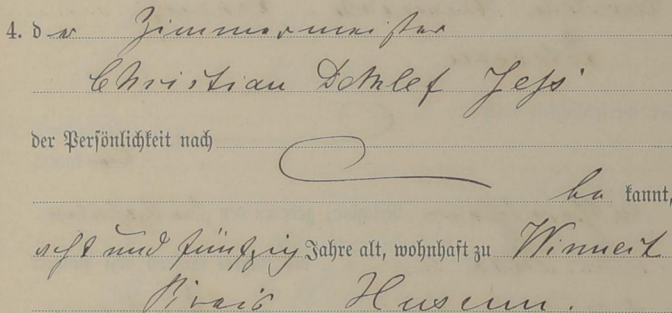 4. der Zimmermeister
Christian Detlef Jeß
der Persönlichkeit nach
be kannt,
acht und fünfzig Jahre alt, wohnhaft zu Winnert
Kreis Husum.